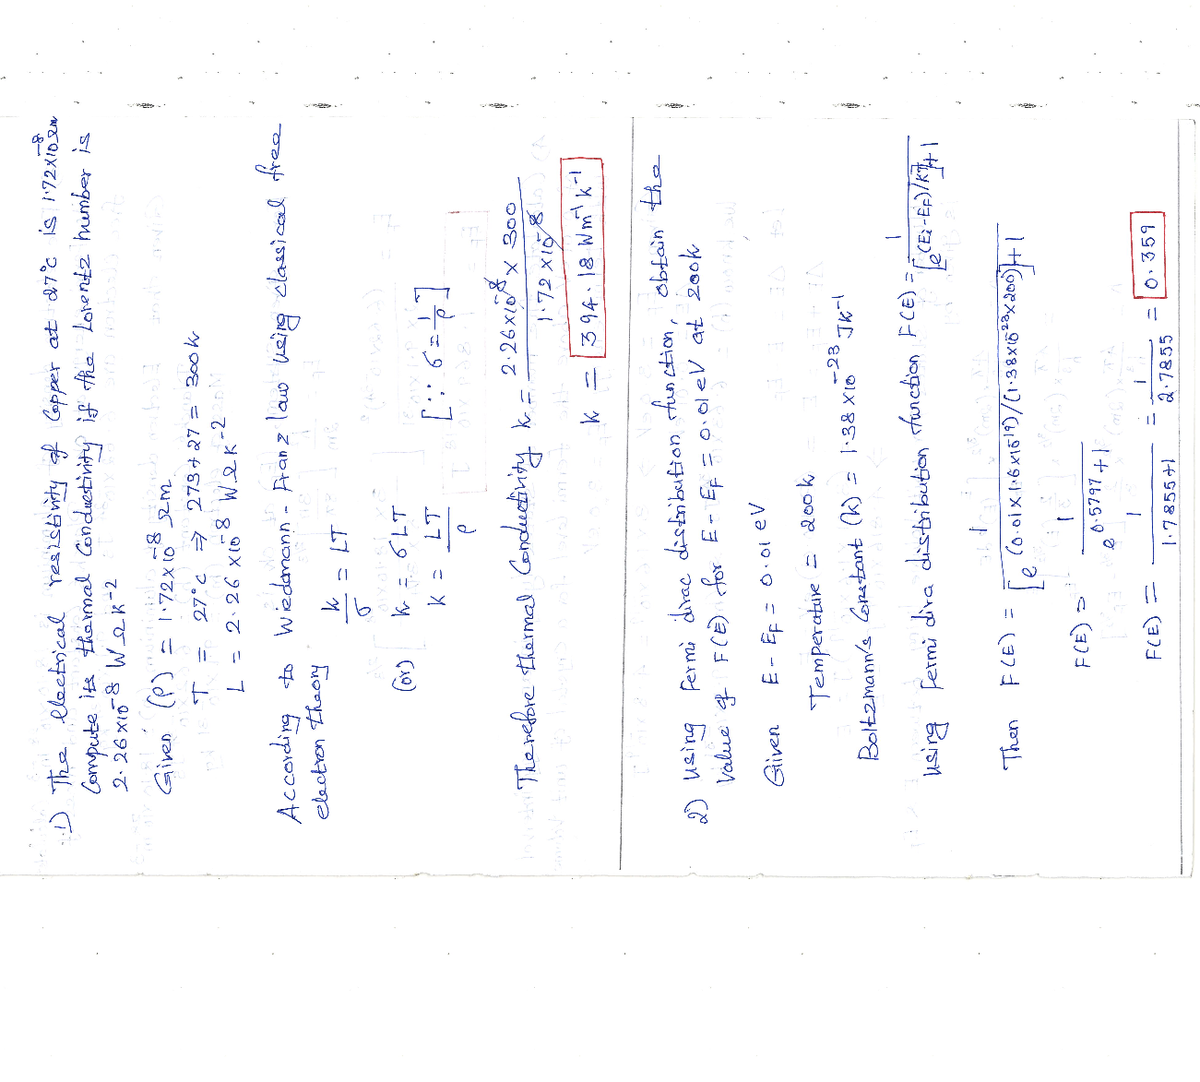 1) The electrical resistivity of Copper at 27°C is 1.72x10⁻⁸ Ωm
Compute its thermal Conductivity if the Lorentz number is
2.26x10⁻⁸ WΩK⁻²
Given (ρ) = 1.72x10⁻⁸ Ωm
T = 27°C ⇒ 273+27 = 300K
L = 2.26 x10⁻⁸ WΩK⁻²
According to Wiedemann-Franz law using classical free
electron theory
K/σ = LT
(or) K = σLT
K = LT/ρ [∵ σ = 1/ρ]
Therefore thermal Conductivity K = 2.26x10⁻⁸ x 300 / 1.72x10⁻⁸
K = 394.18 Wm⁻¹K⁻¹
2) Using Fermi dirac distribution function, obtain the
Value of F(E) for E-E_F = 0.01eV at 200K
Given E-E_F = 0.01eV
Temperature = 200K
Boltzmann's Constant (K) = 1.38x10⁻²³ JK⁻¹
Using Fermi dira distribution function F(E) = 1/[e^(E_i-E_F)/KT]+1
Then F(E) = 1/[e^(0.01x1.6x10⁻¹⁹)/(1.38x10⁻²³x200)]+1
F(E) = 1/e^0.5797+1
F(E) = 1/1.7855+1 = 1/2.7855 = 0.359